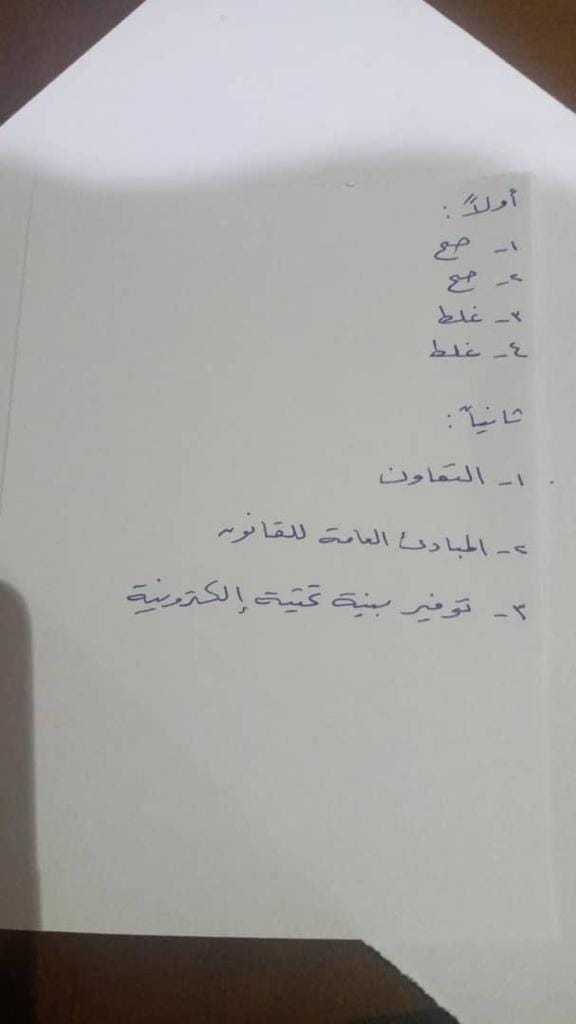 أولاً :
١- صح
٢- صح
٣- غلط
٤- غلط
ثانياً :
١- التعاون
٢- المبادئ العامة للقانون
٣- توفير بنية تحتية إلكترونية